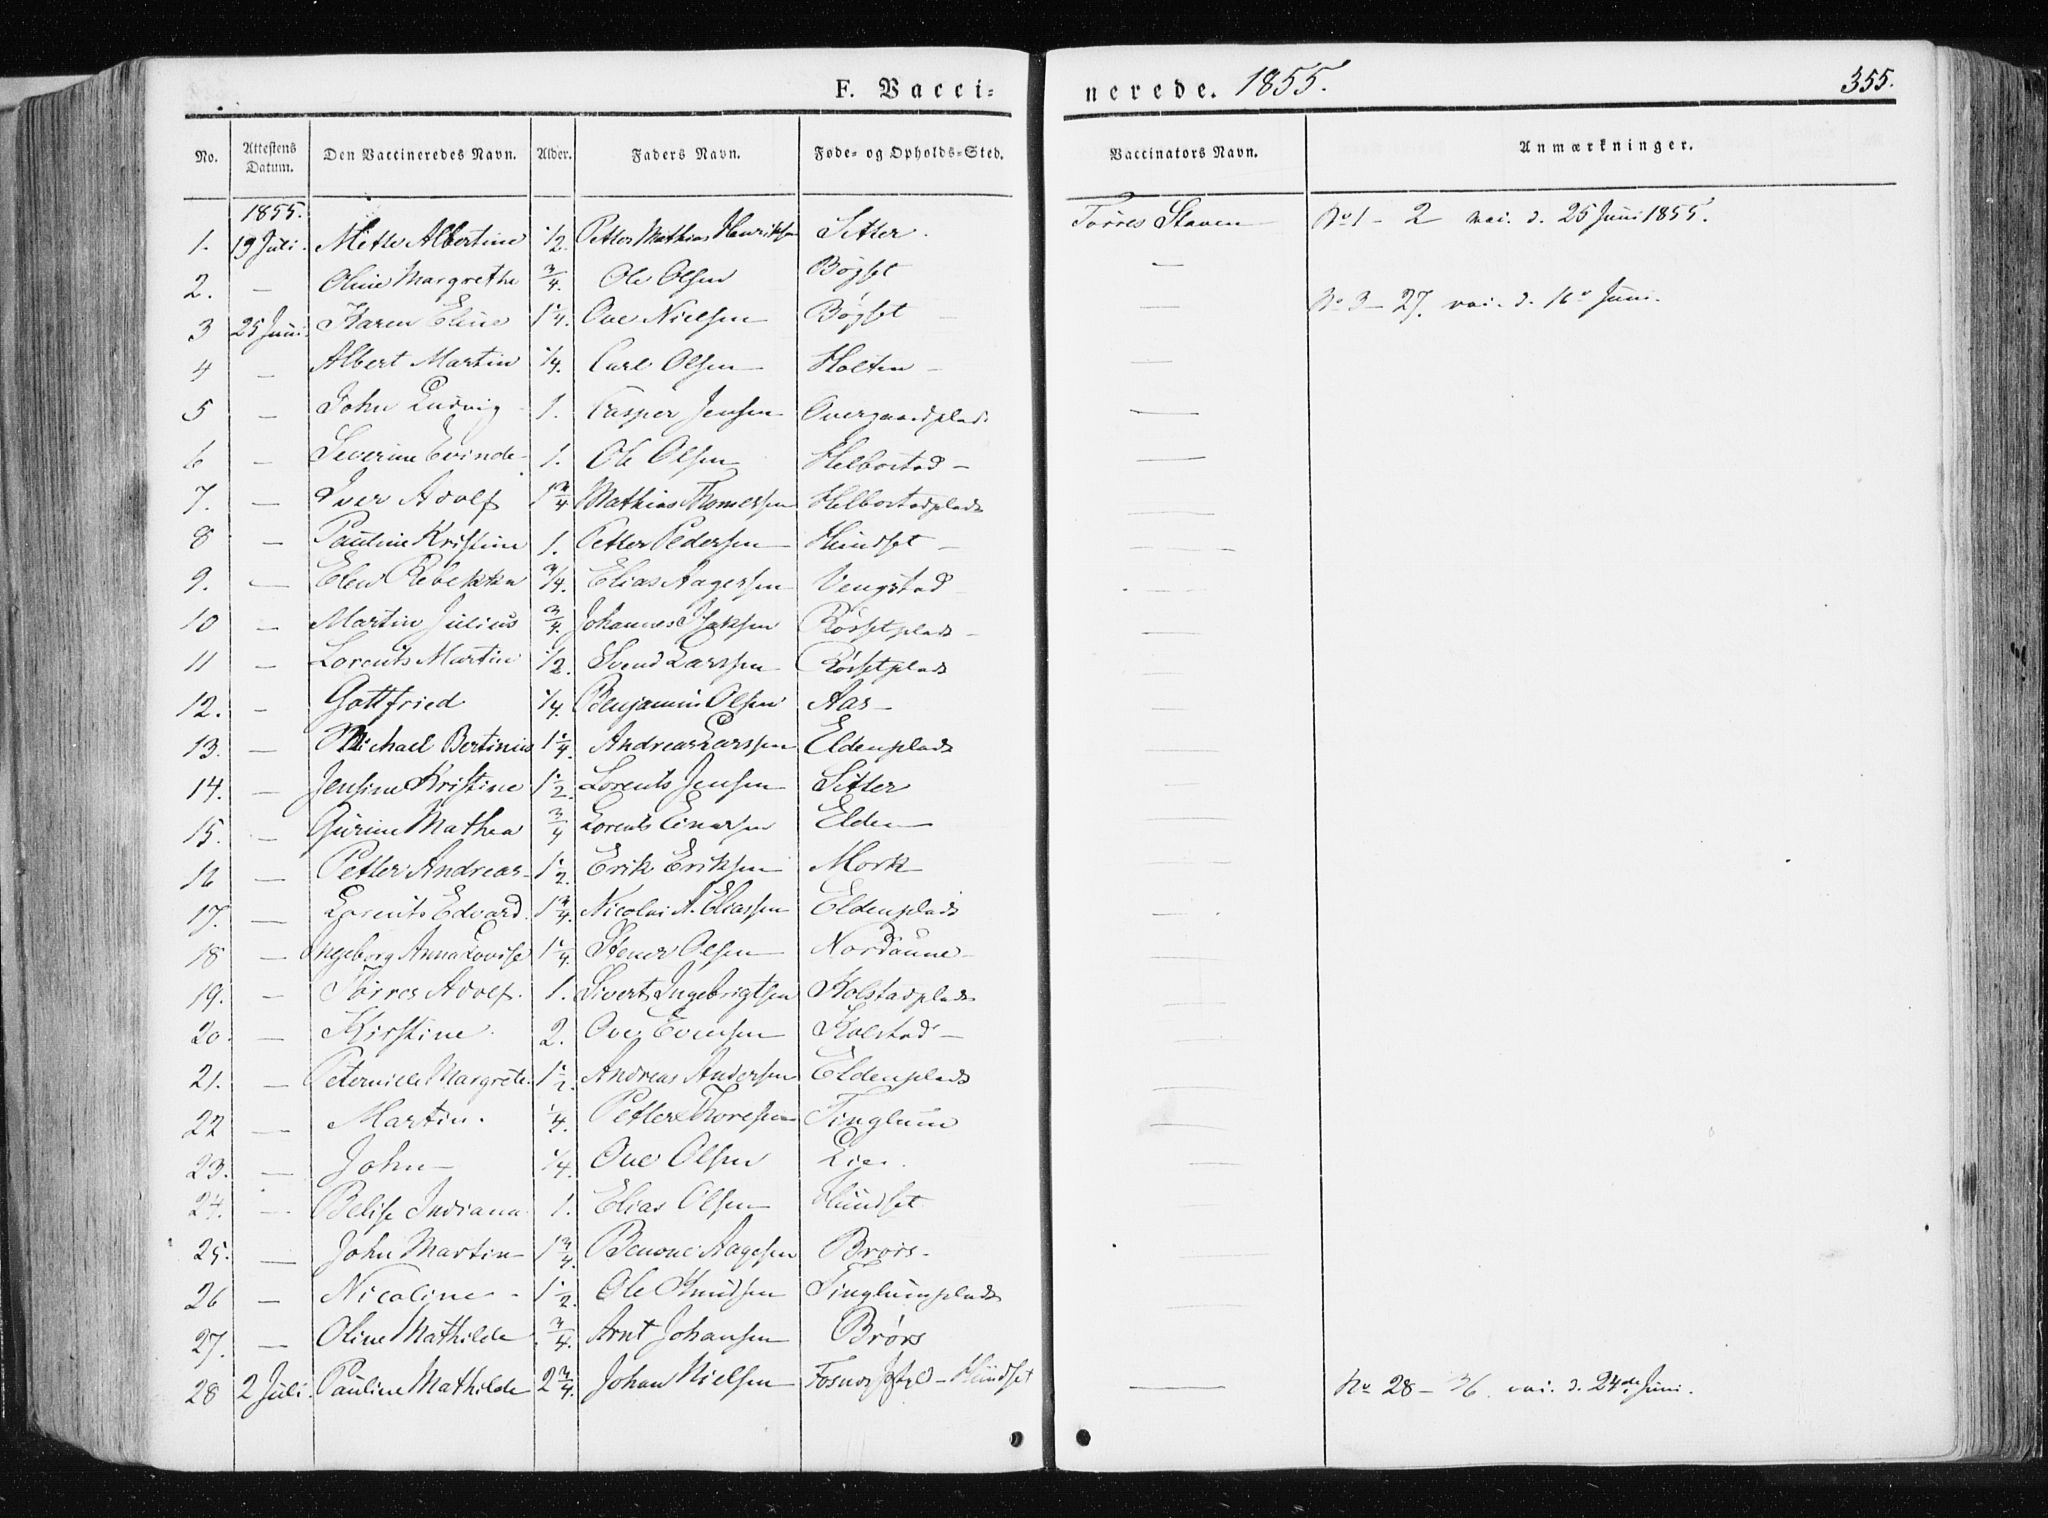 F. Vaccinerede. 1855. 355.
No. Attestens Datum. Den Vaccineredes Navn. Alder. Faders Navn. Føde- og Opholds-Sted. Vaccinators Navn. Anmærkninger.
1855.
1. 19 Juli. Mette Albertine 1/2. Petter Mathias Henriksen Sitter. Tørres Staven No 1 - 2 vai. d. 25 Juni 1855.
2. — Oline Margrethe 3/4. Ole Olsen Bøgset —
3 25 Juni. Karen Eline 1 1/4. Ove Nielsen Bøgset — — No 3 - 27. vai. d. 16de Juni.
4 — Albert Martin 1/4. Carl Olsen Holten — —
5 — John Ludvig 1. Casper Jensen Overgaardplads —
6 — Severine Evinde 1. Ole Olsen Helbostad — —
7. — Iver Adolf 1 3/4 Mathias Thomesen Helbostadplads —
8 — Pauline Kristine 1. Petter Pedersen Hundset — —
9. — Elen Rebekka 3/4. Elias Aagesen Vengstad —
10 — Martin Julius 3/4. Johannes Isaksen Røssetplads —
11 — Lorents Martin 1/2. Svend Larssen Røssetplads —
12. — Gottfried 1/4. Benjamin Olsen Aas — —
13. — Michael Bertinius 1 1/4. Andreas Larssen Eldenplads —
14. — Jensine Kristine 1 1/2. Lorents Jensen Sitter —
15. — Gurine Mathea 3/4 Lorents Einarsen Elden —
16 — Petter Andreas 1 1/2. Erik Eriksen Mork —
17. — Lorents Edvard 1 3/4. Nicolai A. Eliassen Eldenplads —
18 — Ingeborg Anna Lovise 1 1/4. Stener Olsen Nordaune —
19. — Tørres Adolf. 1. Sivert Ingebrigtsen Kolstadplads —
20. — Kirstine 2. Ove Evensen Kolstad — —
21. — Peternille Margrete 1 1/2. Andreas Andersen Eldenplads —
22 — Martin. 1/4. Petter Thoresen Tinglum —
23. — John 1/4. Ove Olsen Lie. —
24. — Belise Indiana 1. Elias Olsen Hundset —
25. — John Martin 1 3/4. Benoni Aagesen Brørs. —
26 — Nicoline 1 1/2. Ole Knudsen Tinglumplads —
27. — Oline Mathilde 3/4. Arnt Johansen Brørs
28 2 Juli. Pauline Mathilde 2 3/4. Johan Nielsen — Hundset — No 28 - 36. vai. d. 24de Juni.